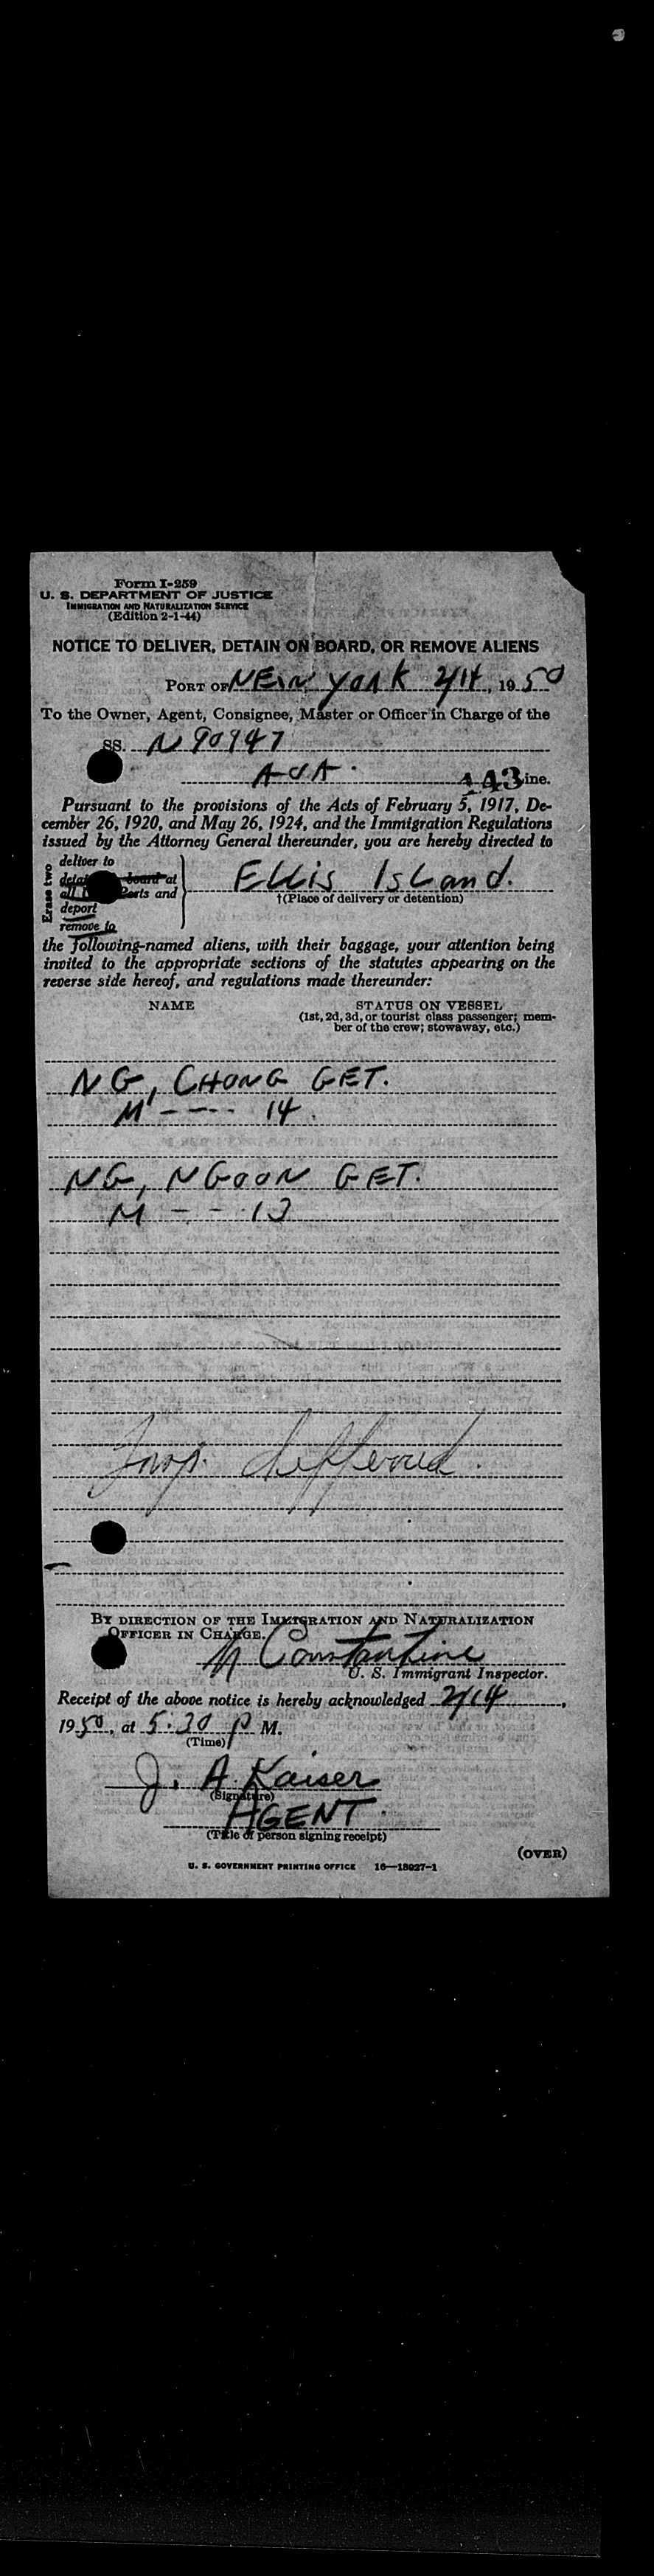 Form I-259
U. S. DEPARTMENT OF JUSTICE
IMMIGRATION AND NATURALIZATION SERVICE
(Edition 2-1-44)
NOTICE TO DELIVER, DETAIN ON BOARD, OR REMOVE ALIENS
PORT OF NEW YORK 2/14, 1950
To the Owner, Agent, Consignee, Master or Officer in Charge of the
SS. N 90947
A-O-A. 143 ine.
Pursuant to the provisions of the Acts of February 5, 1917, De-
cember 26, 1920, and May 26, 1924, and the Immigration Regulations
issued by the Attorney General thereunder, you are hereby directed to
Erase two
deliver to
board at
and
deport
remove to
Ellis Island.
†(Place of delivery or detention)
the following-named aliens, with their baggage, your attention being
invited to the appropriate sections of the statutes appearing on the
reverse side hereof, and regulations made thereunder:
NAME STATUS ON VESSEL
(1st, 2d, 3d, or tourist class passenger; mem-
ber of the crew; stowaway, etc.)
NG, CHONG GET.
M ---- 14.
NG, NGOON GET.
M --- 13
BY DIRECTION OF THE IMMIGRATION AND NATURALIZATION
OFFICER IN CHARGE.
Constantine
U. S. Immigrant Inspector.
Receipt of the above notice is hereby acknowledged 2/14,
1950, at 5:30 P M.
(Time)
J. A. Kaiser
(Signature)
AGENT.
(Title of person signing receipt)
(OVER)
U. S. GOVERNMENT PRINTING OFFICE 16—18027-1